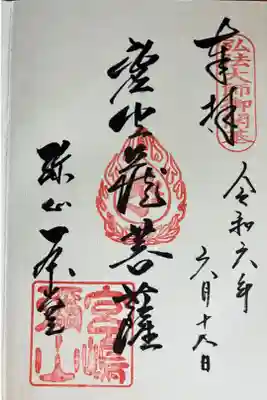 奉拝
弘法大師御開基
令和六年
六月十八日
虚空蔵菩薩
弥山本堂
宮嶋
彌山